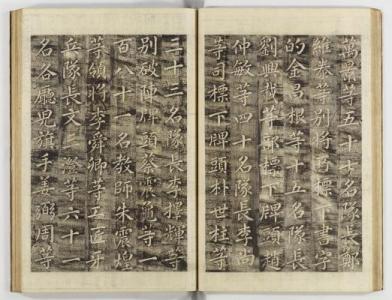 萬景等五十七名隊長鄭
維泰等別將再標下書字
的金易根等十五名隊長
劉興哉等標下牌頭趙
仲敏等四十名隊長李尚
等司標下牌頭朴世柱等
三十三名隊長李擇輝等
別破陣牌頭蔡震龍等一
百八十一名教師朱震煌
等領將李舜卿等工匠牙
兵隊長文二澄等六十一
名各廳兒旗手姜弼周等